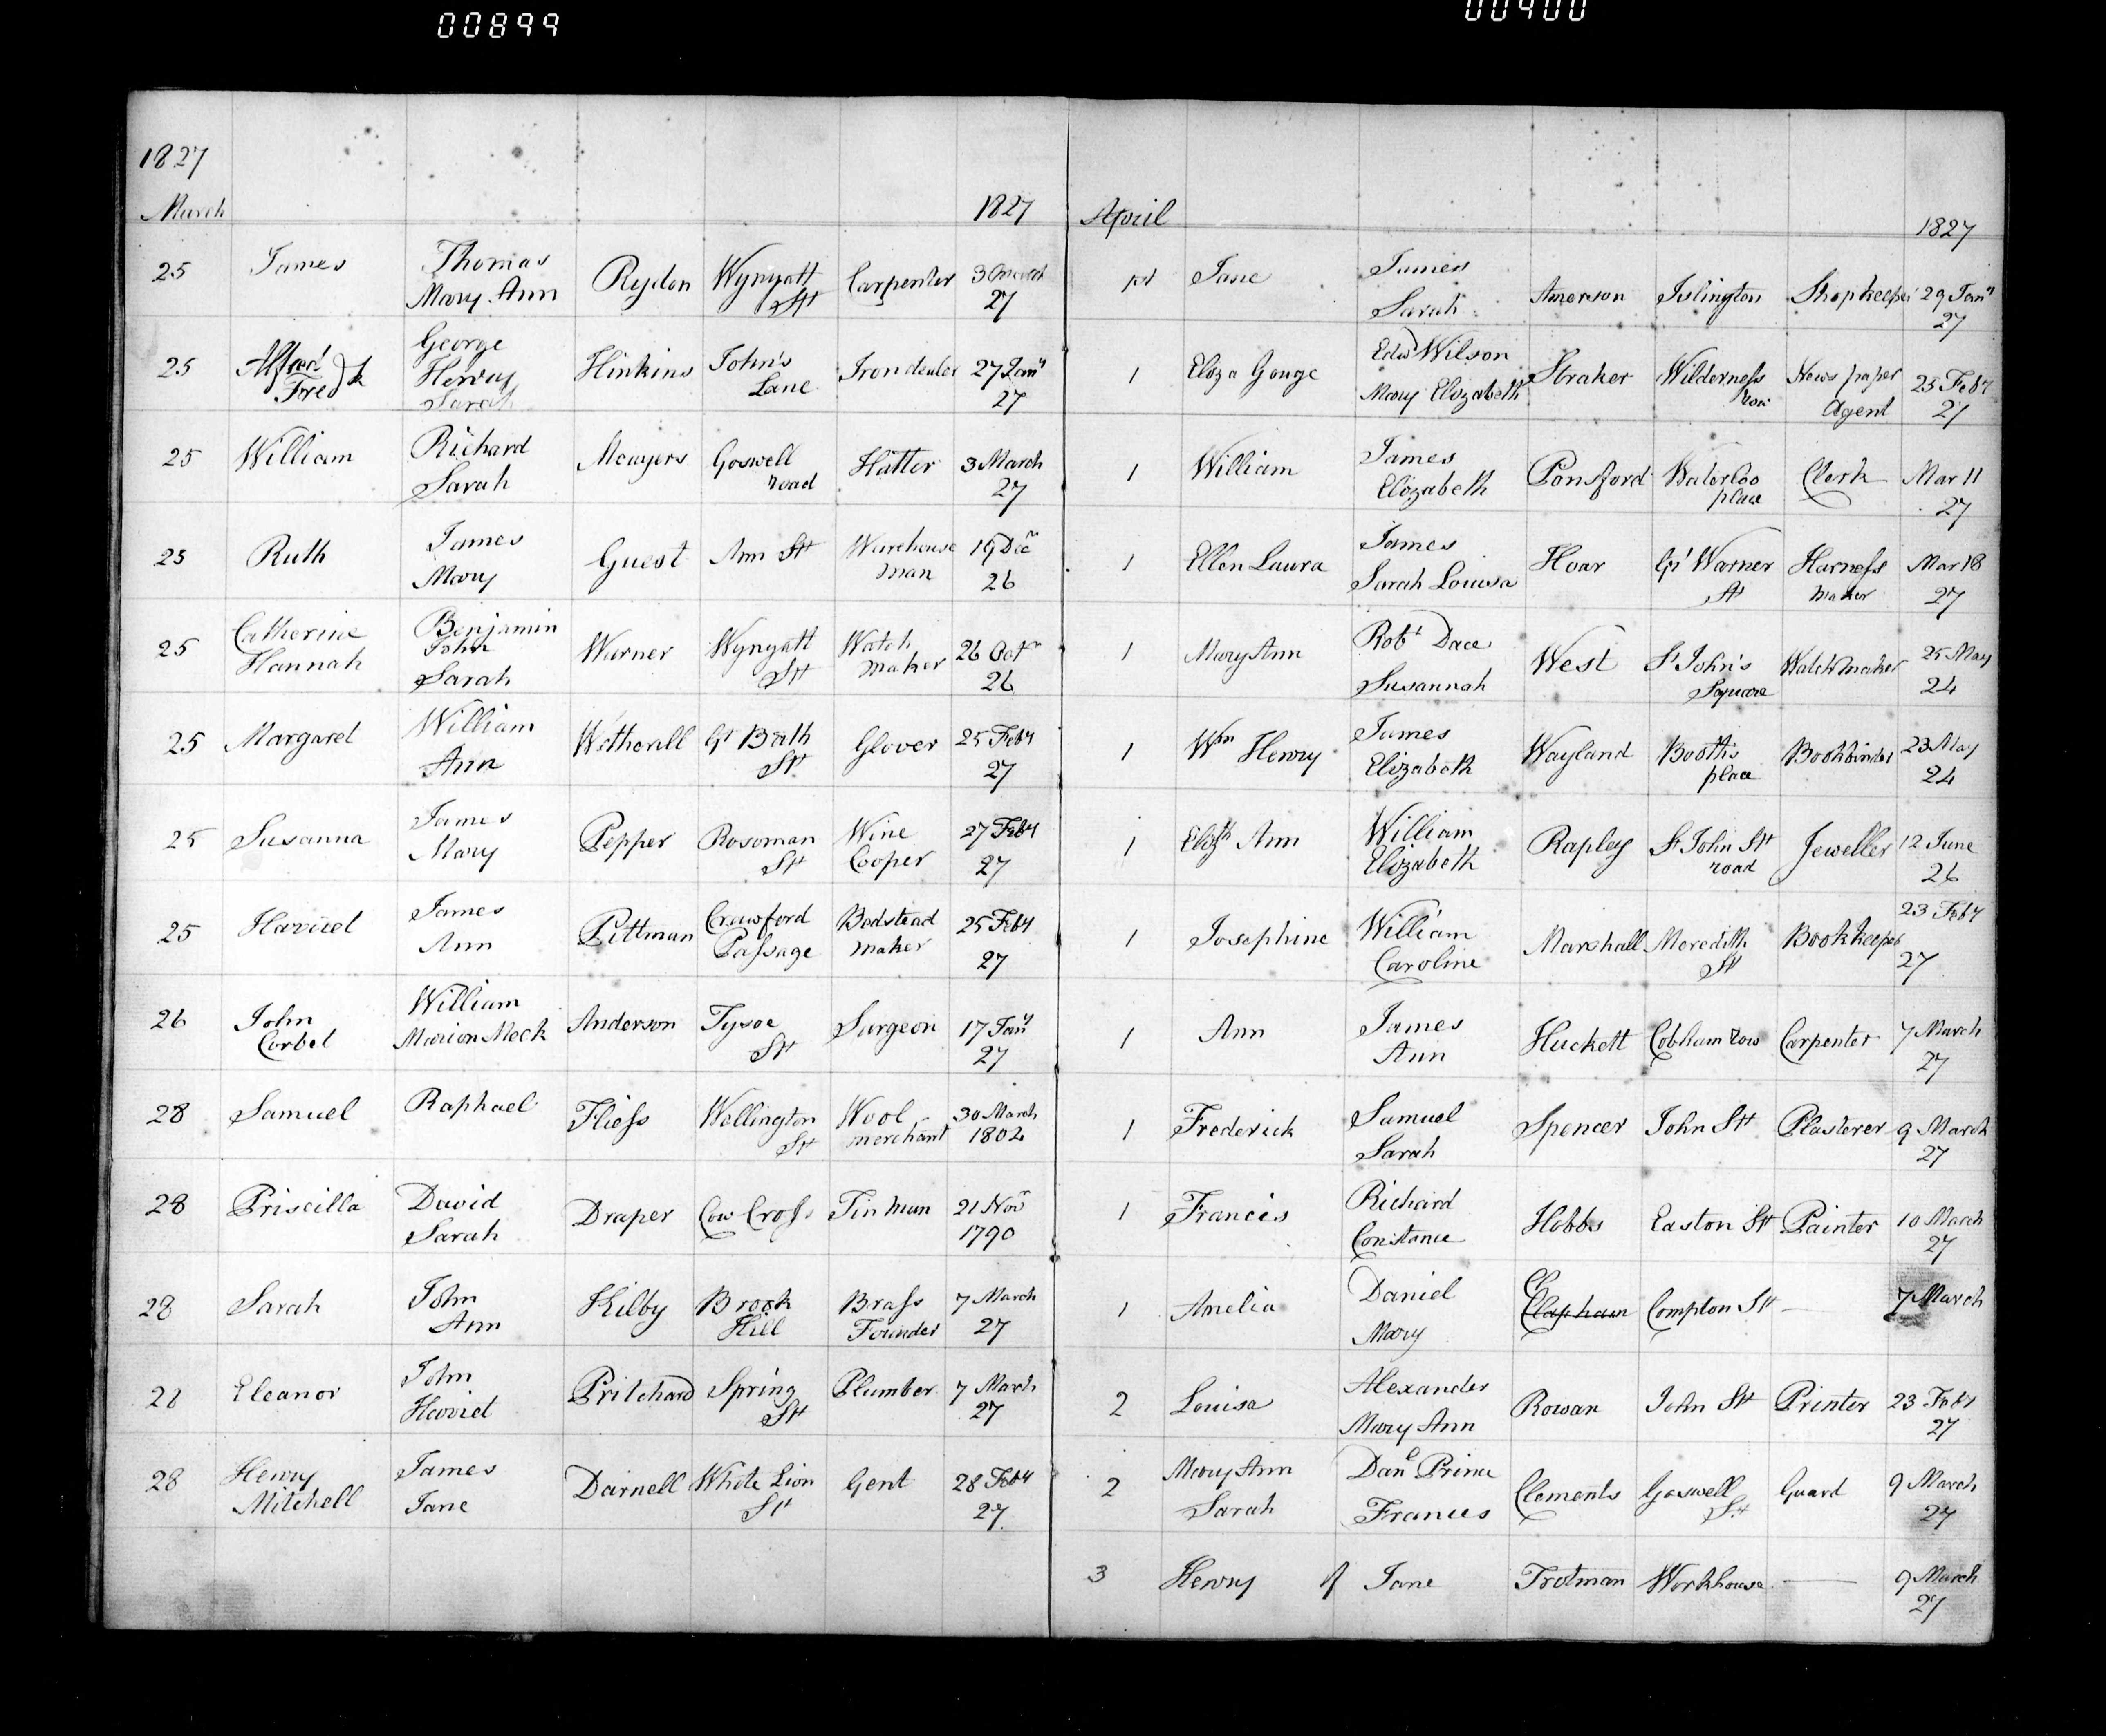 00899
00400
1827
March 1827
25 James Thomas Rydon Wynyatt Carpenter 3 March
Mary Ann St 27
25 Alfred George Hinkins John's Iron dealer 27 Jany
Fredk Henry Lane 27
Sarah
25 William Richard Meuyers Goswell Hatter 3 March
Sarah road 27
25 Ruth James Guest Ann St Warehouse 19 Decr
Mary man 26
25 Catherine Benjamin Warner Wynyatt Watch 26 Octr
Hannah John St maker 26
Sarah
25 Margaret William Wetherall Gt Bath Glover 25 Feby
Ann St 27
25 Susanna James Pepper Rosoman Wine 27 Feby
Mary St Cooper 27
25 Harriet James Pittman Crawford Bedstead 25 Feby
Ann Passage maker 27
26 John William Anderson Tysoe Surgeon 17 Jany
Corbet Marion Meck St 27
28 Samuel Raphael Fliess Wellington Wool 30 March
St merchant 1802
28 Priscilla David Draper Cow Cross Tin man 21 Novr
Sarah 1790
28 Sarah John Kilby Brook Brass 7 March
Ann Hill Founder 27
28 Eleanor John Pritchard Spring Plumber 7 March
Harriet St 27
28 Henry James Darnell White Lion Gent 28 Feby
Mitchell Jane St 27
April 1827
1st Jane James Amerson Islington Shopkeeper 29 Jany
Sarah 27
1 Eliza Gouge Edwd Wilson Straker Wilderness News paper 25 Feby
Mary Elizabeth row Agent 27
1 William James Ponsford Waterloo Clerk Mar 11
Elizabeth place 27
1 Ellen Laura James Hoar Gt Warner Harness Mar 18
Sarah Louisa St maker 27
1 Mary Ann Robt Dace West St John's Watchmaker 25 May
Susannah Square 24
1 Wm Henry James Wayland Booth's Bookbinder 23 May
Elizabeth place 24
1 Elizth Ann William Rapley St John St Jeweller 12 June
Elizabeth road 26
1 Josephine William Marshall Meredith Bookkeeper 23 Feby
Caroline St 27
1 Ann James Huckett Cobham row Carpenter 7 March
Ann 27
1 Frederick Samuel Spencer John St Plasterer 9 March
Sarah 27
1 Francis Richard Hobbs Easton St Painter 10 March
Constance 27
1 Amelia Daniel Clapham Compton St — 7 March
Mary
2 Louisa Alexander Rowan John St Printer 23 Feby
Mary Ann 27
2 Mary Ann Danl Prince Clements Goswell Guard 9 March
Sarah Frances St 27
3 Henry of Jane Trotman Workhouse — 9 March
27